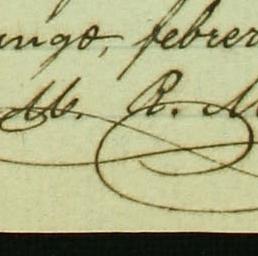 ungo, febrer
M. R. M